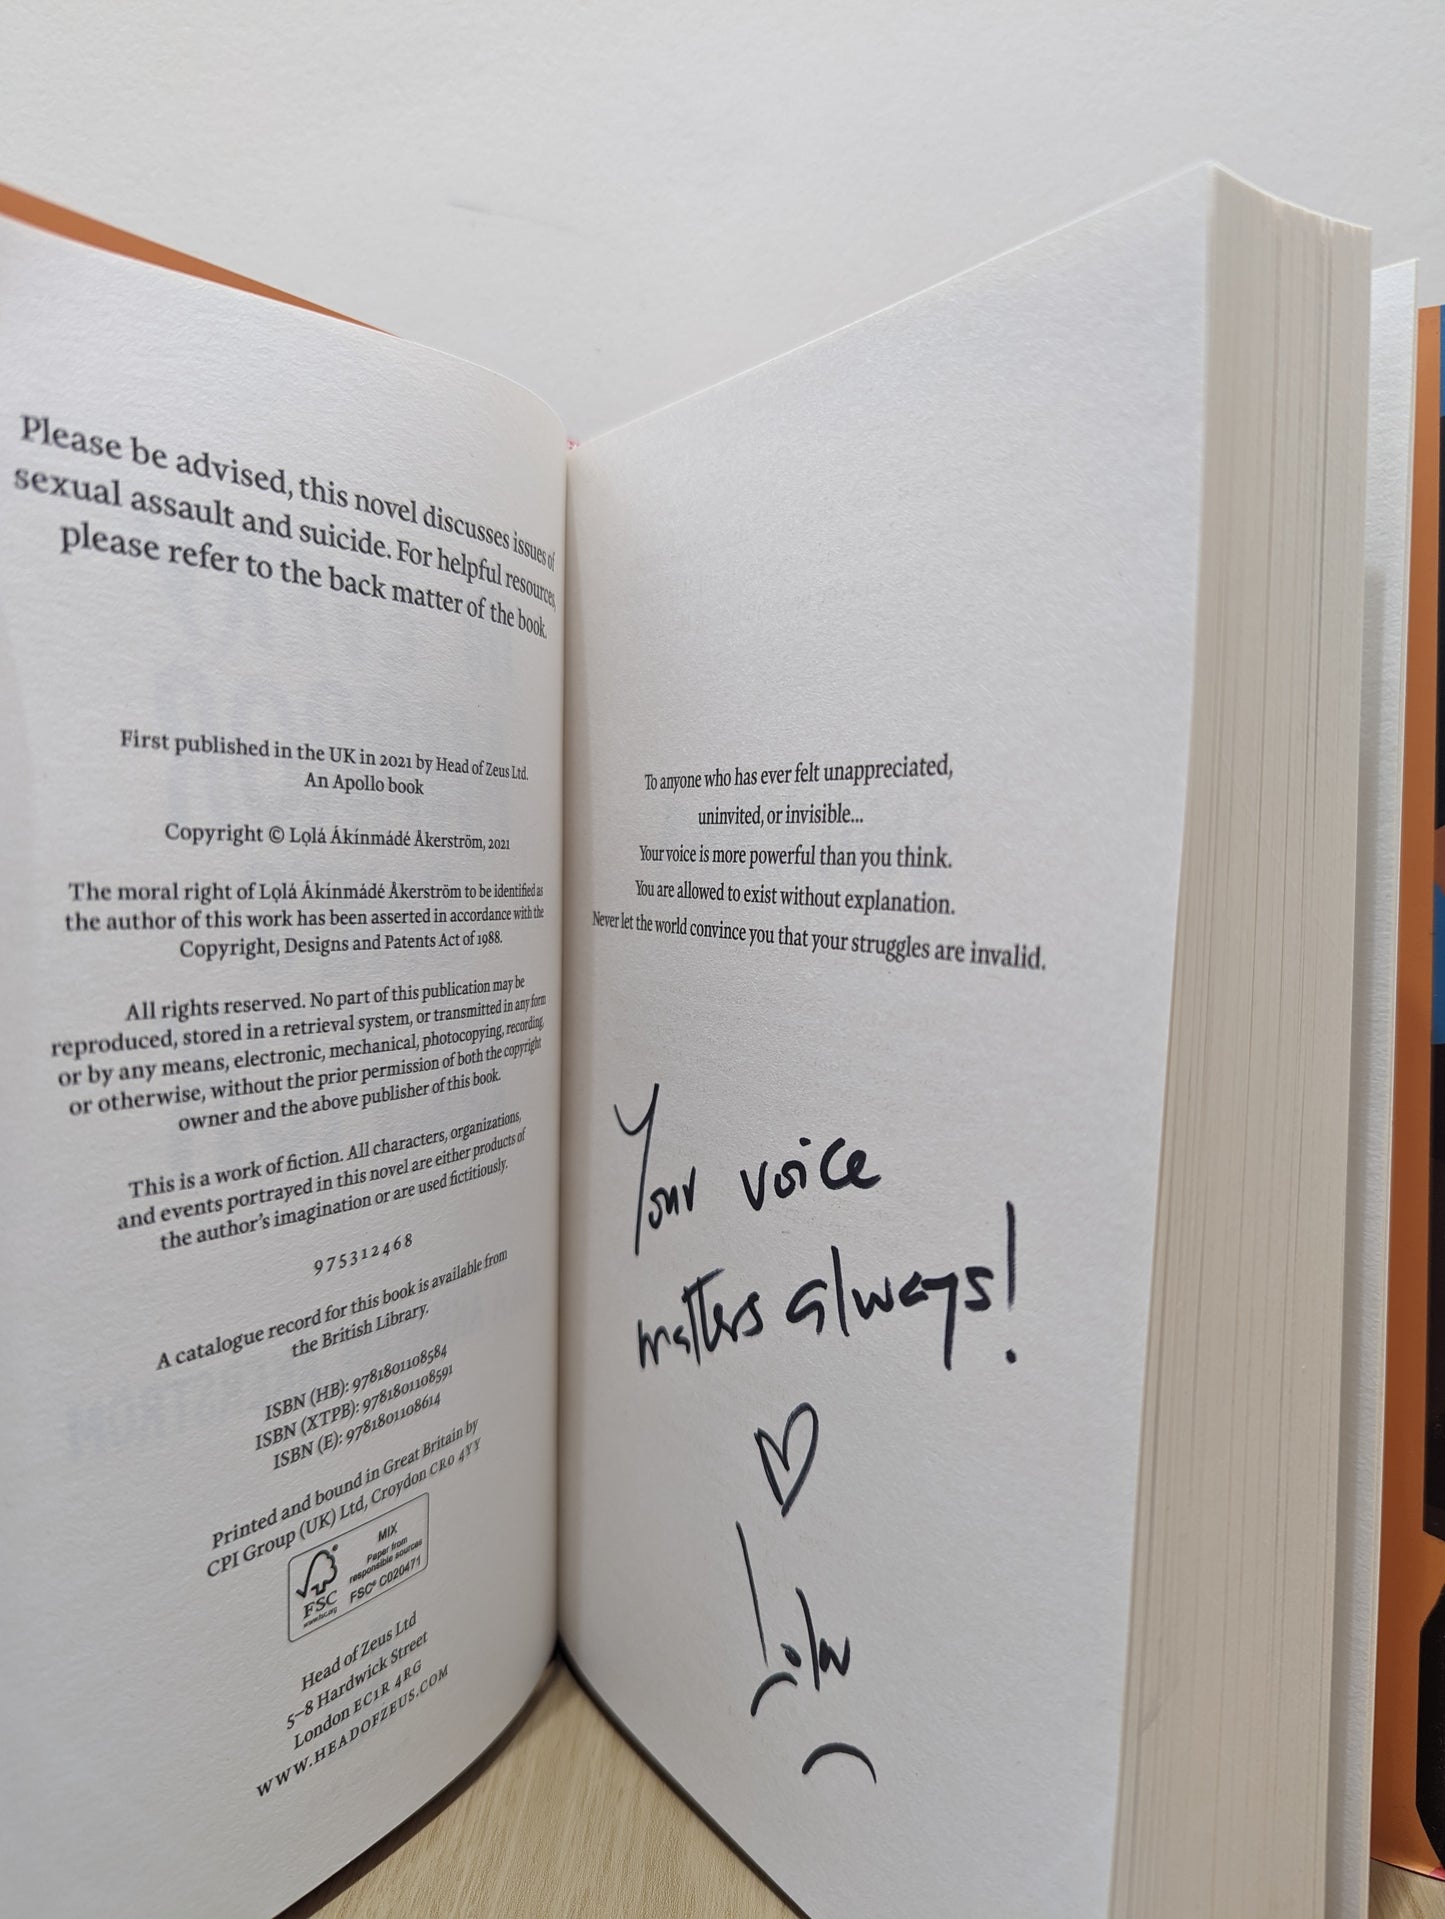 Please be advised, this novel discusses issues of
sexual assault and suicide. For helpful resources,
please refer to the back matter of the book.
First published in the UK in 2021 by Head of Zeus Ltd.
An Apollo book
Copyright © Lọlá Ákínmádé Åkerström, 2021
The moral right of Lọlá Ákínmádé Åkerström to be identified as
the author of this work has been asserted in accordance with the
Copyright, Designs and Patents Act of 1988.
All rights reserved. No part of this publication may be
reproduced, stored in a retrieval system, or transmitted in any form
or by any means, electronic, mechanical, photocopying, recording,
or otherwise, without the prior permission of both the copyright
owner and the above publisher of this book.
This is a work of fiction. All characters, organizations,
and events portrayed in this novel are either products of
the author's imagination or are used fictitiously.
9 7 5 3 1 2 4 6 8
A catalogue record for this book is available from
the British Library.
ISBN (HB): 9781801108584
ISBN (XTPB): 9781801108591
ISBN (E): 9781801108614
Printed and bound in Great Britain by
CPI Group (UK) Ltd, Croydon CR0 4YY
MIX
Paper from
responsible sources
FSC® C020471
FSC
www.fsc.org
Head of Zeus Ltd
5–8 Hardwick Street
London EC1R 4RG
WWW.HEADOFZEUS.COM
To anyone who has ever felt unappreciated,
uninvited, or invisible...
Your voice is more powerful than you think.
You are allowed to exist without explanation.
Never let the world convince you that your struggles are invalid.
Your voice
matters always!
Lola